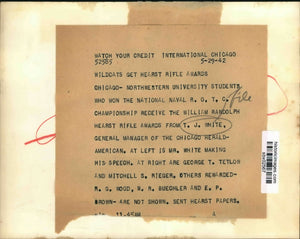 WATCH YOUR CREDIT INTERNATIONAL CHICAGO
52585 5-29-42
WILDCATS GET HEARST RIFLE AWARDS
CHICAGO- NORTHWESTERN UNIVERSITY STUDENTS
WHO WON THE NATIONAL NAVAL R. O. T. C.
file
CHAMPIONSHIP RECEIVE THE WILLIAM RANDOLPH
HEARST RIFLE AWARDS FROM T. J. WHITE,
GENERAL MANAGER OF THE CHICAGO HERALD-
AMERICAN. AT LEFT IS MR. WHITE MAKING
HIS SPEECH. AT RIGHT ARE GEORGE T. TETLON
AND MITCHELL S. RIEGER. OTHERS REWARDED-
R. G. WOOD, W. R. BUEGHLER AND E. P.
BROWN- ARE NOT SHOWN. SENT HEARST PAPERS.
11-45AM A